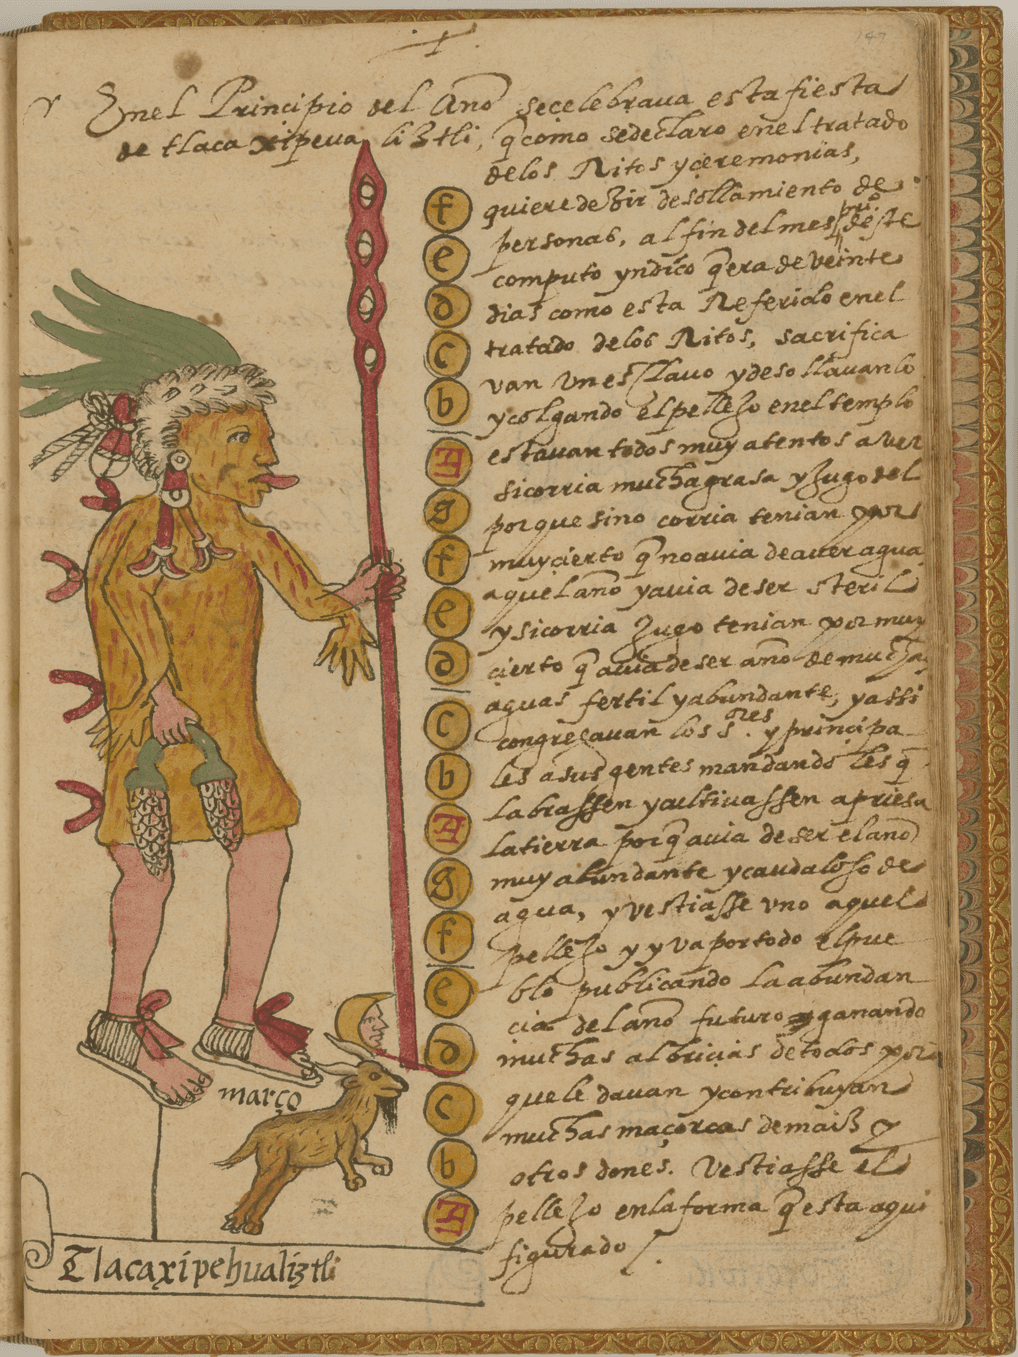 147
En el Principio del Año se celebrava esta fiesta
de tlaca xipeua liztli, q̃ como se declaro en el tratado
de los Ritos y ceremonias,
quiere dezir desollamiento de
personas, al fin del mes pro deste
computo yndico q̃ era de veinte
dias como esta Referido en el
tratado de los Ritos, sacrifica
van un esclauo y desollauanlo
y colgando el pellejo en el templo
estauan todos muy atentos a ver
si corria mucha grasa y jugo del
porque si no corria tenian por
muy cierto q̃ no auia de aver agua
aquel año y auia de ser steril
y si corria jugo tenian por muy
cierto q̃ auia de ser año de mucha
aguas fertil y abundante, y assi
congregauan los s.ores y principa
les a sus gentes mandando les q̃
labrassen y cultivassen apriesa
la tierra porq̃ auia de ser el año
muy abundante y caudaloso de
agua, y vestiasse uno aquel
pellejo y yva por todo el pue
blo publicando la abundan
cia del año futuro y ganando
muchas albricias de todos por
que le davan y contribuyan
muchas maçorcas de maiz y
otros dones. Vestiasse el
pellejo en la forma q̃ esta aqui
figurado
f
e
d
c
b
A
g
f
e
d
c
b
A
g
f
e
d
c
b
A
março
Tlacaxipehualiztli